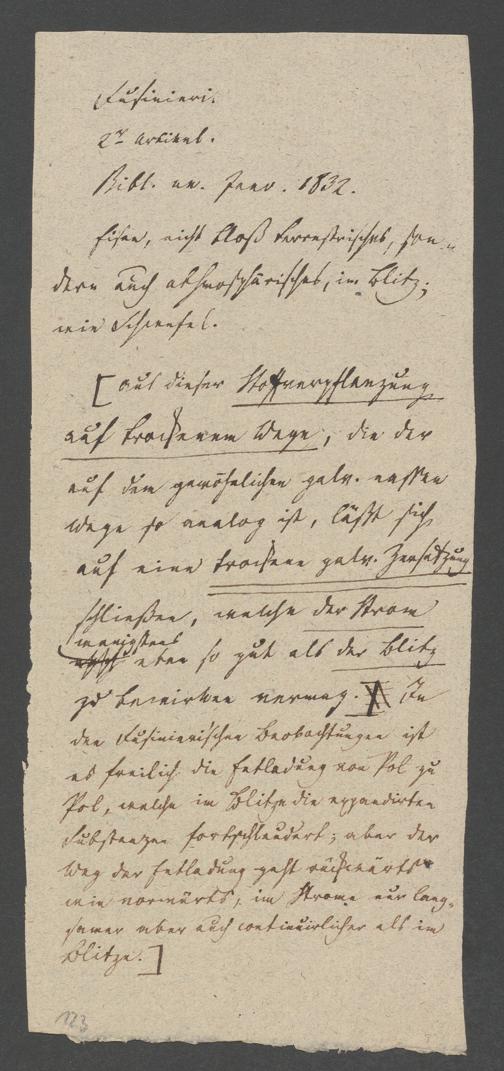 Fusinieri.
2r Artikel.
Bibl. un. Janv. 1832.
Eisen, nicht bloß terrestrisches, son-
dern auch athmosphärisches, im Blitz;
wie Schwefel.
[aus dieser Stoffverpflanzung
auf trockenem Wege, die der
auf dem gewöhnlichen galv. nassen
Wege so analog ist, läßt sich
auf eine trockene galv. Zersetzung
schließen, welche der Strom
wenigstens
eben so gut als der Blitz
zu bewirken vermag. In
den Fusinierischen Beobachtungen ist
es freilich die Entladung von Pol zu
Pol, welche im Blitze die expandirten
Substanzen fortschleudert; aber der
Weg der Entladung geht rückwärts
wie vorwärts, im Strome nur lang-
samer aber auch continuirlicher als im
Blitze.]
123